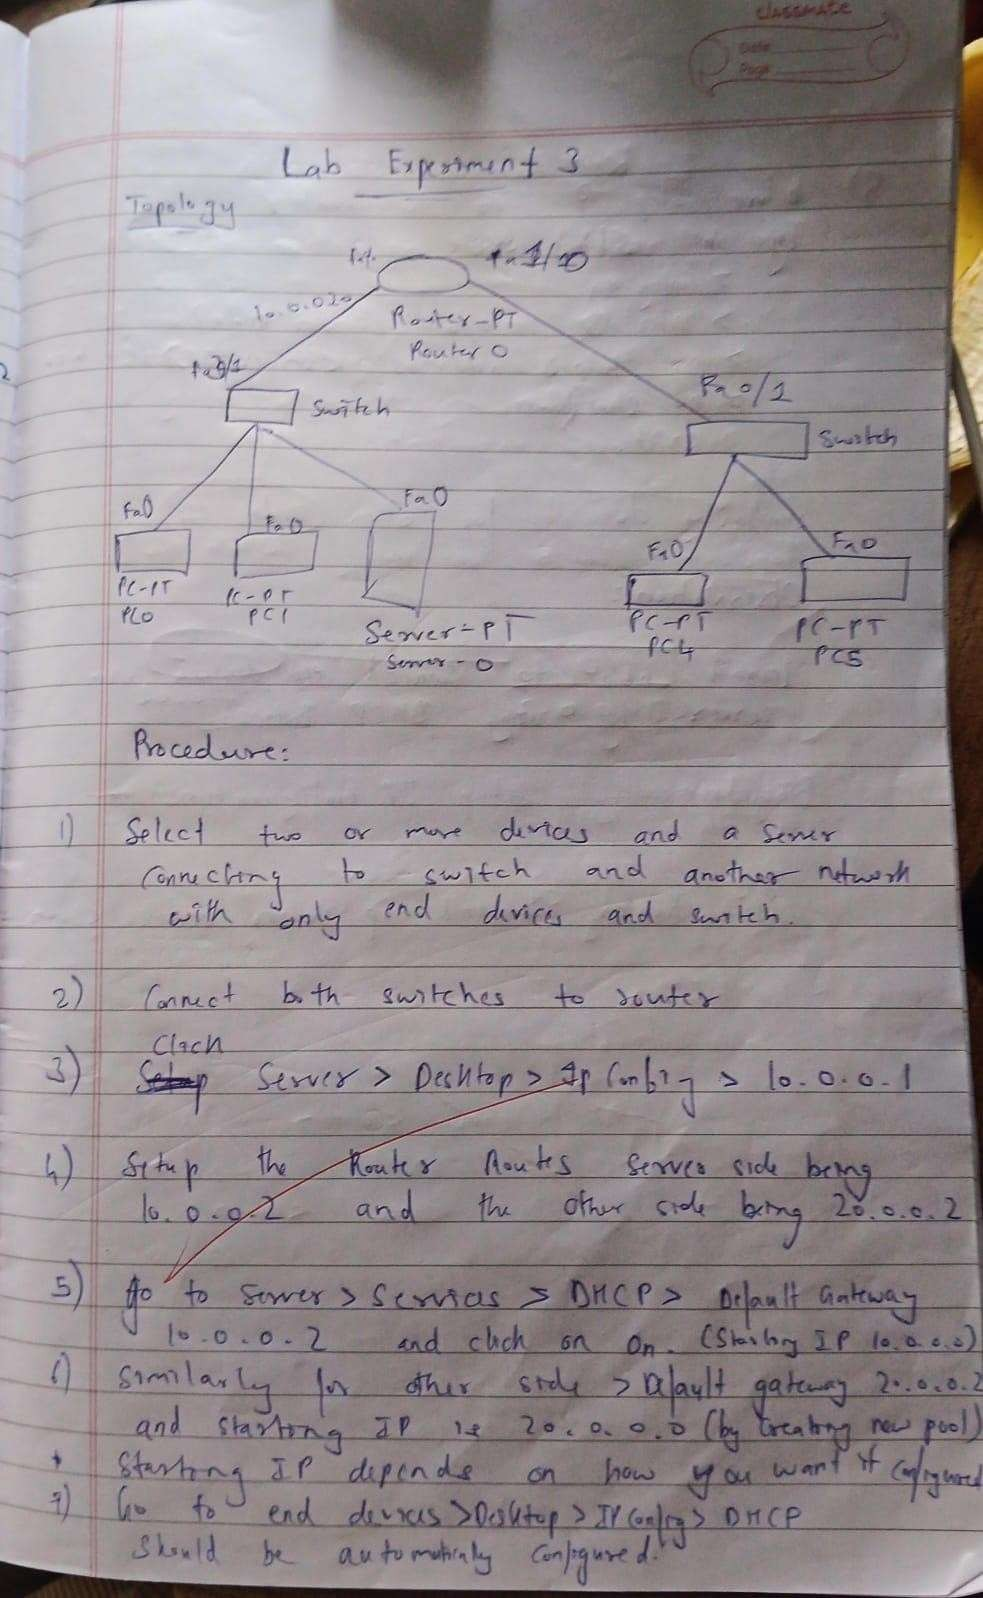 classmate
Date
Page
Lab Experiment 3
Topology
10.0.020
Router-PT
Router 0
Switch
Fa 0/1
Switch
Fa0
Fa0
Fa0
Fa0
Fa0
PC-PT
PC0
PC-PT
PC1
Server-PT
Server-0
PC-PT
PC4
PC-PT
PC5
Procedure:
1) Select two or more devices and a Server
Connecting to switch and another network
with only end devices and switch.
2) Connect both switches to router
Click
3) Server > Desktop > Ip Config > 10.0.0.1
4) Setup the Router Routes Server side being
10.0.0.2 and the other side being 20.0.0.2
5) Go to Server > Services > DHCP > Default Gateway
10.0.0.2 and click on on. (Starting IP 10.0.0.0)
6) Similarly for other side > Default gateway 20.0.0.2
and starting IP is 20.0.0.0 (by Creating new pool)
* Starting IP depends on how you want it configured
7) Go to end devices > Desktop > IP Config > DHCP
should be automatically configured.